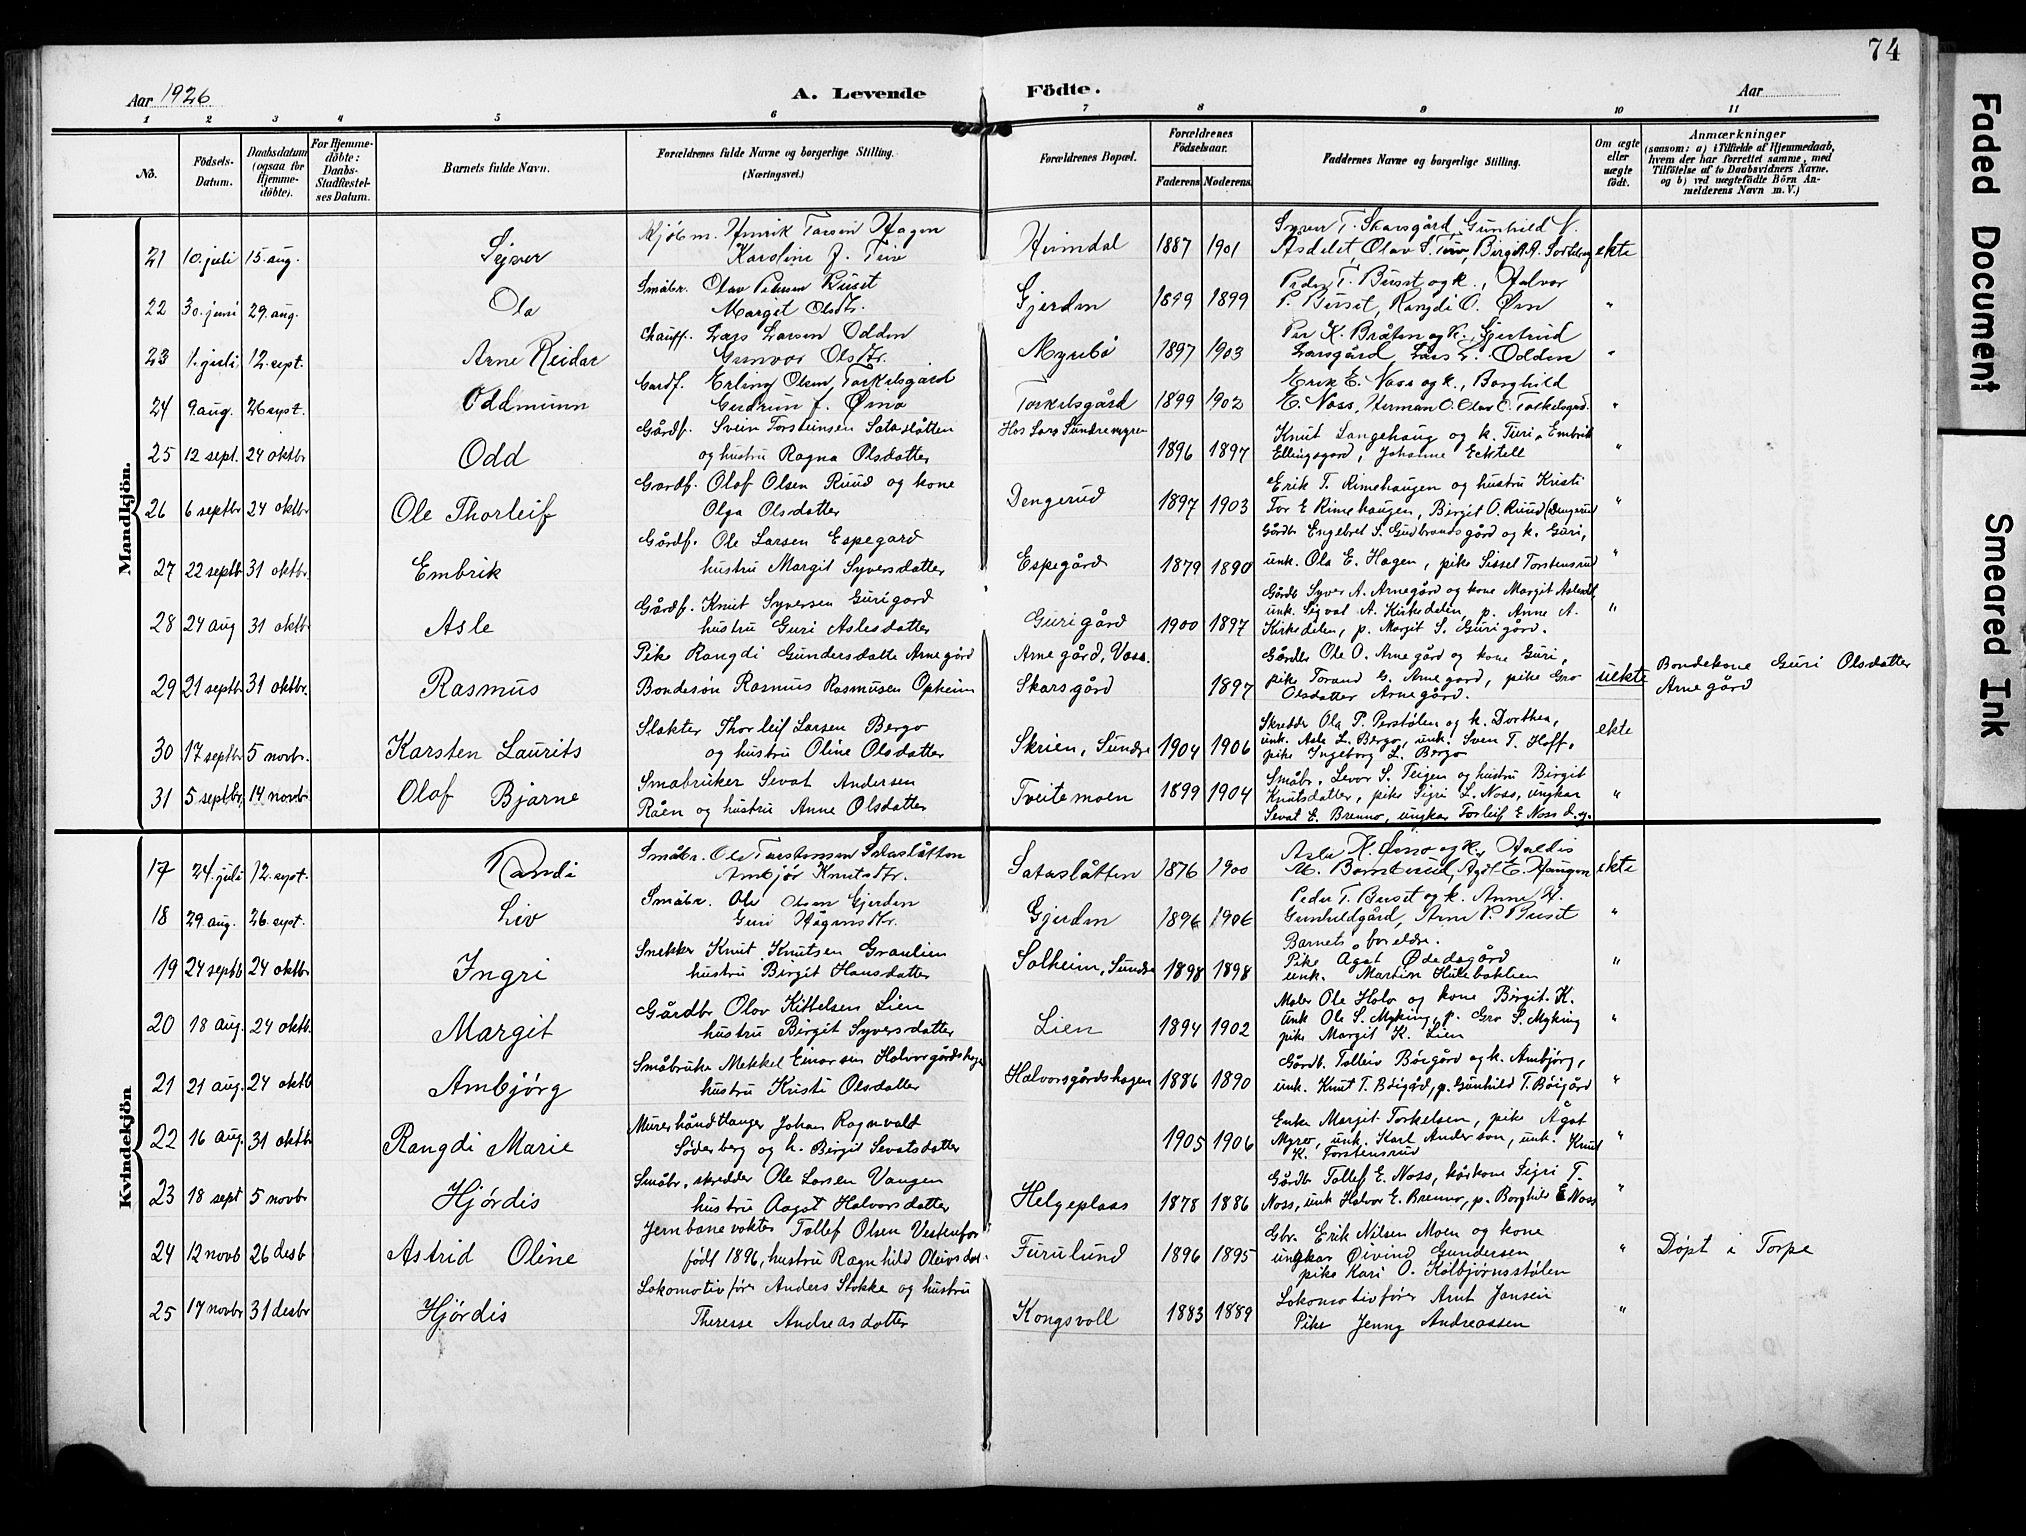 74
Aar 1926
A. Levende Födte.
Aar
1 2 3 4 5 6 7 8 9 10 11
No.
Födsels-Datum.
Daabsdatum (ogsaa for Hjemme-döbte).
For Hjemme-döbte: Daabs-Stadfæstel-ses Datum.
Barnets fulde Navn.
Forældrenes fulde Navne og borgerlige Stilling. (Næringsvei.)
Forældrenes Bopæl.
Forældrenes Födselsaar.
Faderens. Moderens.
Faddernes Navne og borgerlige Stilling.
Om ægte eller uægte födt.
Anmærkninger
(saasom: a) i Tilfælde af Hjemmedaab,
hvem der har forrettet samme, med
Tilföielse af to Daabsvidners Navne.
og b) ved uægtefödte Börn An-
melderens Navn m. V.)
Mandkjön.
21 10. juli 15. aug. Sejver Henrik Hagen Karoline J. Heimdal 1887 1901 Syver T. Skarsgård, Gunhild N. Åsdelet, Olav S. ekte
22 30. juni 29. aug. Ola Småbr. Olav Pedersen Buset Margit Olsdtr. Gjerdn 1899 1899 Peder T. Buset og k., Halvor P. Buset, Rangdi O. Øen "
23 1. juli 12. sept. Arne Reidar Chauff. Lars Larsen Odden Gunvor Olsdtr. Myrebö 1897 1903 Per K. Bråten og k., Gjertrud Larsgård, Lars L. Odden "
24 9. aug. 26 sept. Oddmunn Gardf. Erling Olsen Torkilsgård Gudrun J. Ørno Torkilsgård 1899 1902 Erik E. Noss og k., Borghild E. Noss, Herman O. Olav O. Tolkilsgrd. "
25 12 sept. 24 oktbr Odd Gårdf. Svein Torsteinsen Sataslåtten og hustru Ragna Olsdatter Hos Lars Sundremyren 1896 1897 Knut Langehaug og k. Turi, Embrik Ellingsgard, Johanne "
26 6 septbr 24 oktbr Ole Thorleif Gardf. Olaf Olsen Ruud og kone Olga Olsdatter Dengerud 1897 1903 Erik T. Rimehaugen og hustru Kristi Tor E Rimehaugen, Birgit O. Ruud (Dengerud "
27 22 septbr 31 oktbr. Embrik Gårdf. Ole Larsen Espegard hustru Margit Syversdatter Espegård 1879 1890 Gårdbr Engebret S. Gudbrandsgård og k. Guri, unk. Ola E. Hagen, pike Sissel Torstensrud "
28 24 aug 31 oktbr. Asle Gårdf. Knut Syversen Gurigard hustru Guri Aslesdatter Gurigård 1900 1897 Gårdb Syver A. Arnegård og kone Margit Aslesdt unk. Sigval A. Kirkedalen, p. Anne A. Kirkedalen, p. Margit S. Gurigård. "
29 21 septbr 31 oktbr. Rasmus Pike Rangdi Gundersdatte Arnegård Bondesøn Rasmus Rasmusen Opheim Arnegård, Voss. Skarsgård 1897 Gårdbr Ole O. Arnegård og kone Guri, pike Torand G. Arnegard, pike Gro Olsdatter Arnegård. uekte Bondekone Guri Olsdatter Arnegård
30 17 septbr 5 novbr. Karsten Laurits Slakter Thorleif Larsen Bergo og hustru Oline Olsdatter Skrien, Sundre 1904 1906 Skredder Ola P. Perstölen og h. Dorthea, unk. Asle L. Bergo, unk. Sven T. Hoff, pike Ingeborg L. Bergo ekte
31 5 septbr. 14 novbr Olaf Bjarne Smabruker Sevat Andersen Råen og hustru Anne Olsdatter Tveitemoen 1899 1904 Småbr. Levor S. Teigen og hustru Birgit Knutsdatter, pike Sigri L. Noss, ungkar Sevat E. Brenno, ungkar Torleif E Noss d.y. "
Kvindekjön
17 24. juli 12. sept. Randi Småbr. Ole Torstensen Sataslåtten Ambjör Knutsdtr. Sataslåtten 1876 1900 Asle K. Ørno og k., Haldis ekte
18 29. aug. 26. sept. Liv Småbr. Ole Olsen Gjerden Guri Hågensdtr. Gjerdn 1896 1906 Peder T. Buset og k. Anne H. Gunhildgård, Arne P. Buset "
19 24 septb 24 oktbr Ingri Snekker Knut Knutsen Graulien hustru Birgit Hansdatter Solheim, Sundre 1898 1898 Barnets foreldre. Pike Ågot Ødedsgård unk. Martin Hulebakken "
20 18 aug. 24 oktb. Margit Gårdbr Olov Kittelsen Lien hustru Birgit Syversdatter Lien 1894 1902 Maler Ole Holo og kone Birgit K. Unk Ole S. Myking, p. Gro S. Myking pike Margit K. Lien "
21 21 aug. 24 oktb Ambjørg Småbruke Mekkel Einarsen Halvorgårdshage hustru Kristi Olsdatter Halvorsgårdshagen 1886 1890 Gårdb. Tolleiv Böigård og k. Ambjørg, unk. Knut T. Böigård, p. Gunhild T. Böigård "
22 16 aug. 31 oktbr Rangdi Marie Murerhåndtlanger Johan Ragnvald Søderberg og h. Birgit Sevatsdatter 1905 1906 Enke Margit Torkelsen, pike Ågot Myro, unk. Karl Anderson, unk. Knut K. Torstensrud "
23 18 sept 5 novbr Hjørdis Småbr, skredder Ole Larsen Vangen hustru Aagot Halvorsdatter Helgeplass 1878 1886 Gårdb Tollef E. Noss, kårkone Sigri T. Noss, unk Halvor E. Brenno, p. Borghild E Noss "
24 12 novb 26 desb Astrid Oline Jernbanevokter Tollef Olsen Vestenfor født 1896, hustru Ragnhild Oleivsdat. Furulund 1896 1895 Gbr. Erik Nilsen Moen og kone ungkar Øivind Gundersen pike Kari O. Kolbjørnsstølen " Døpt i Torpe
25 17 novbr 31 desbr Hjørdis Lokomotivfører Anders Stokke og hustru Therese Andreasdatter Kongsvoll 1883 1889 Lokomotivfører Arnt Jansen Pike Jenny Andreassen "
Faded Document
Smeared Ink